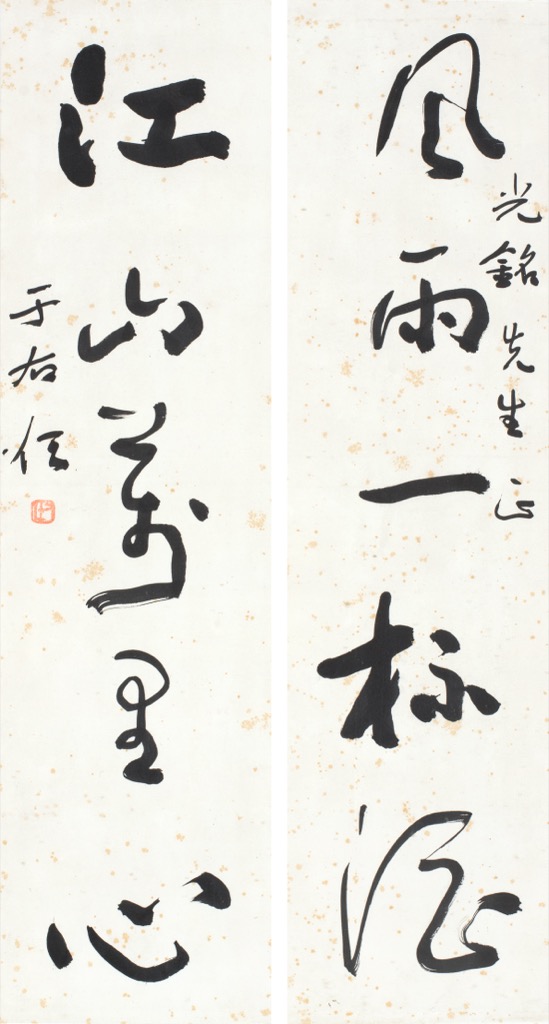 風雨一杯酒
光銘先生正
江山萬里心
于右任